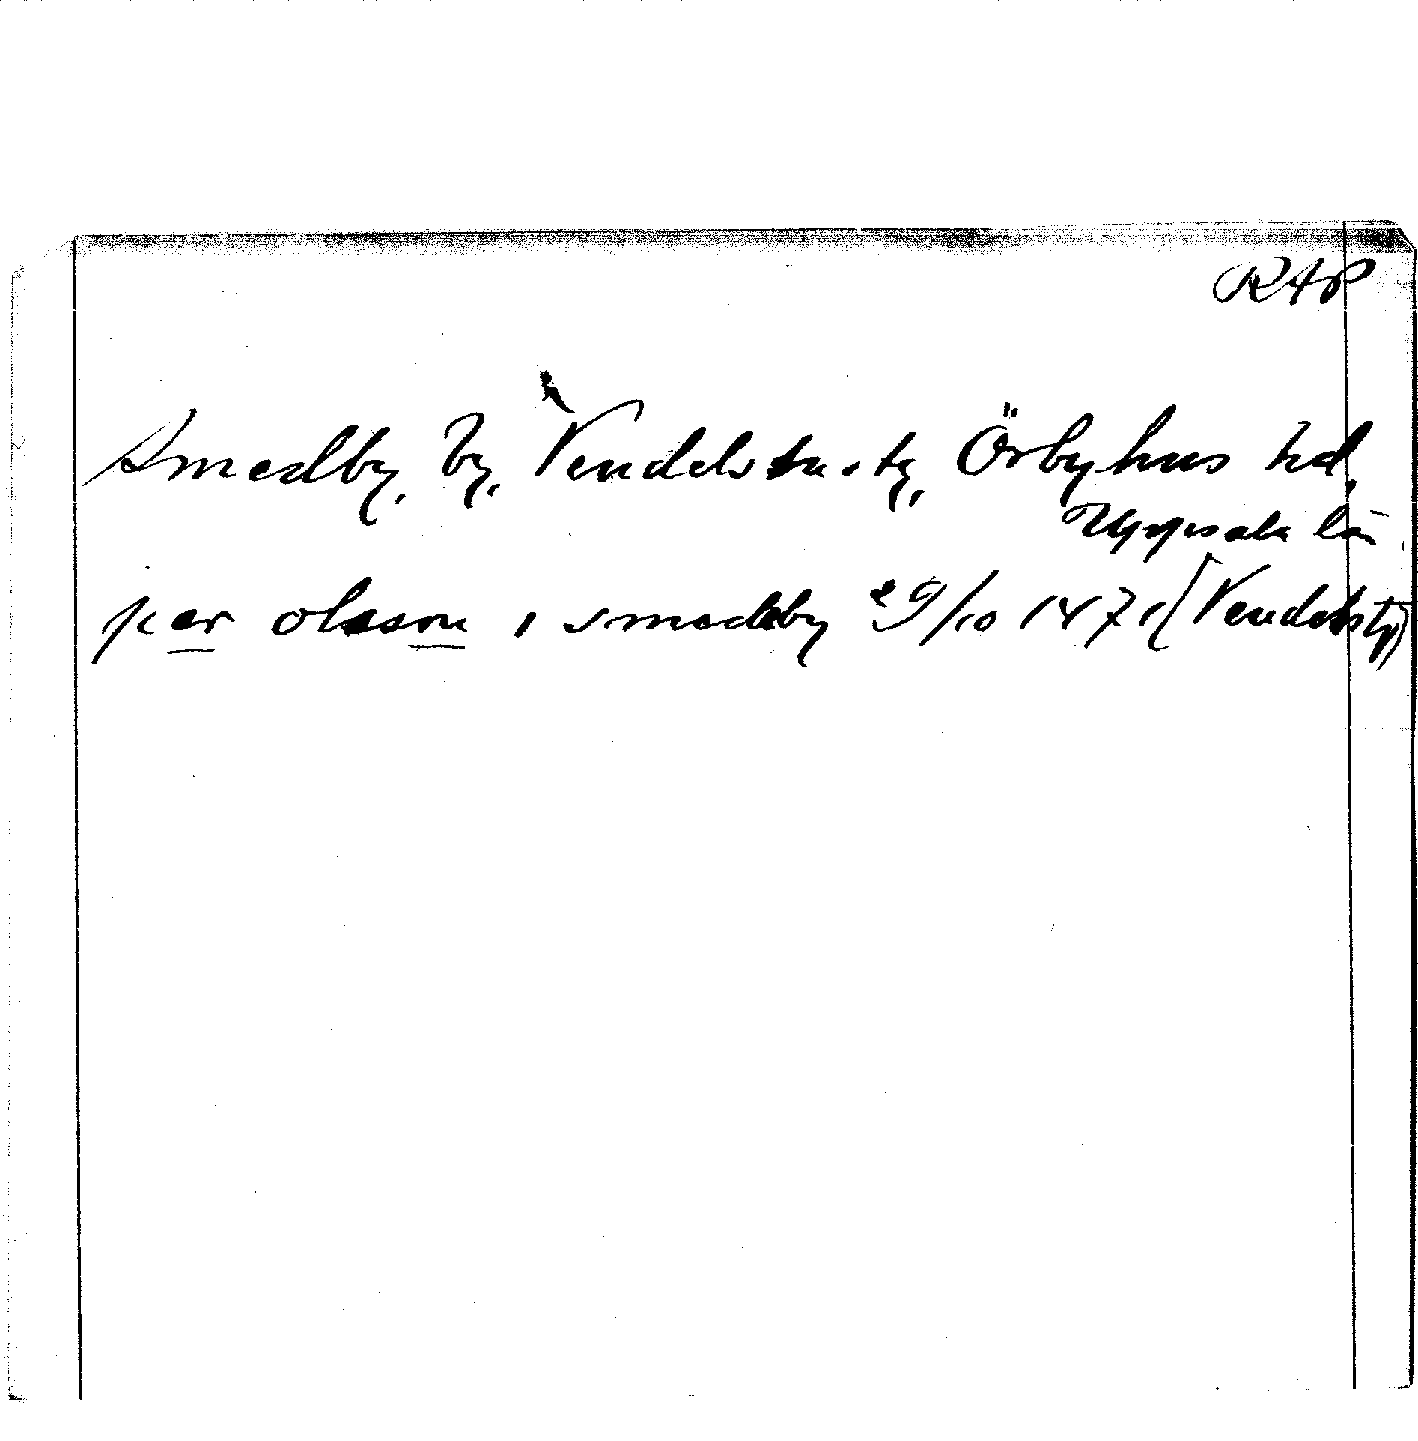 RAP
Smedby, by, Vendels sn o. tg, Örbyhus hd,
Uppsala län
per olsson i smedby 29/10 1471 (Vendels tg)